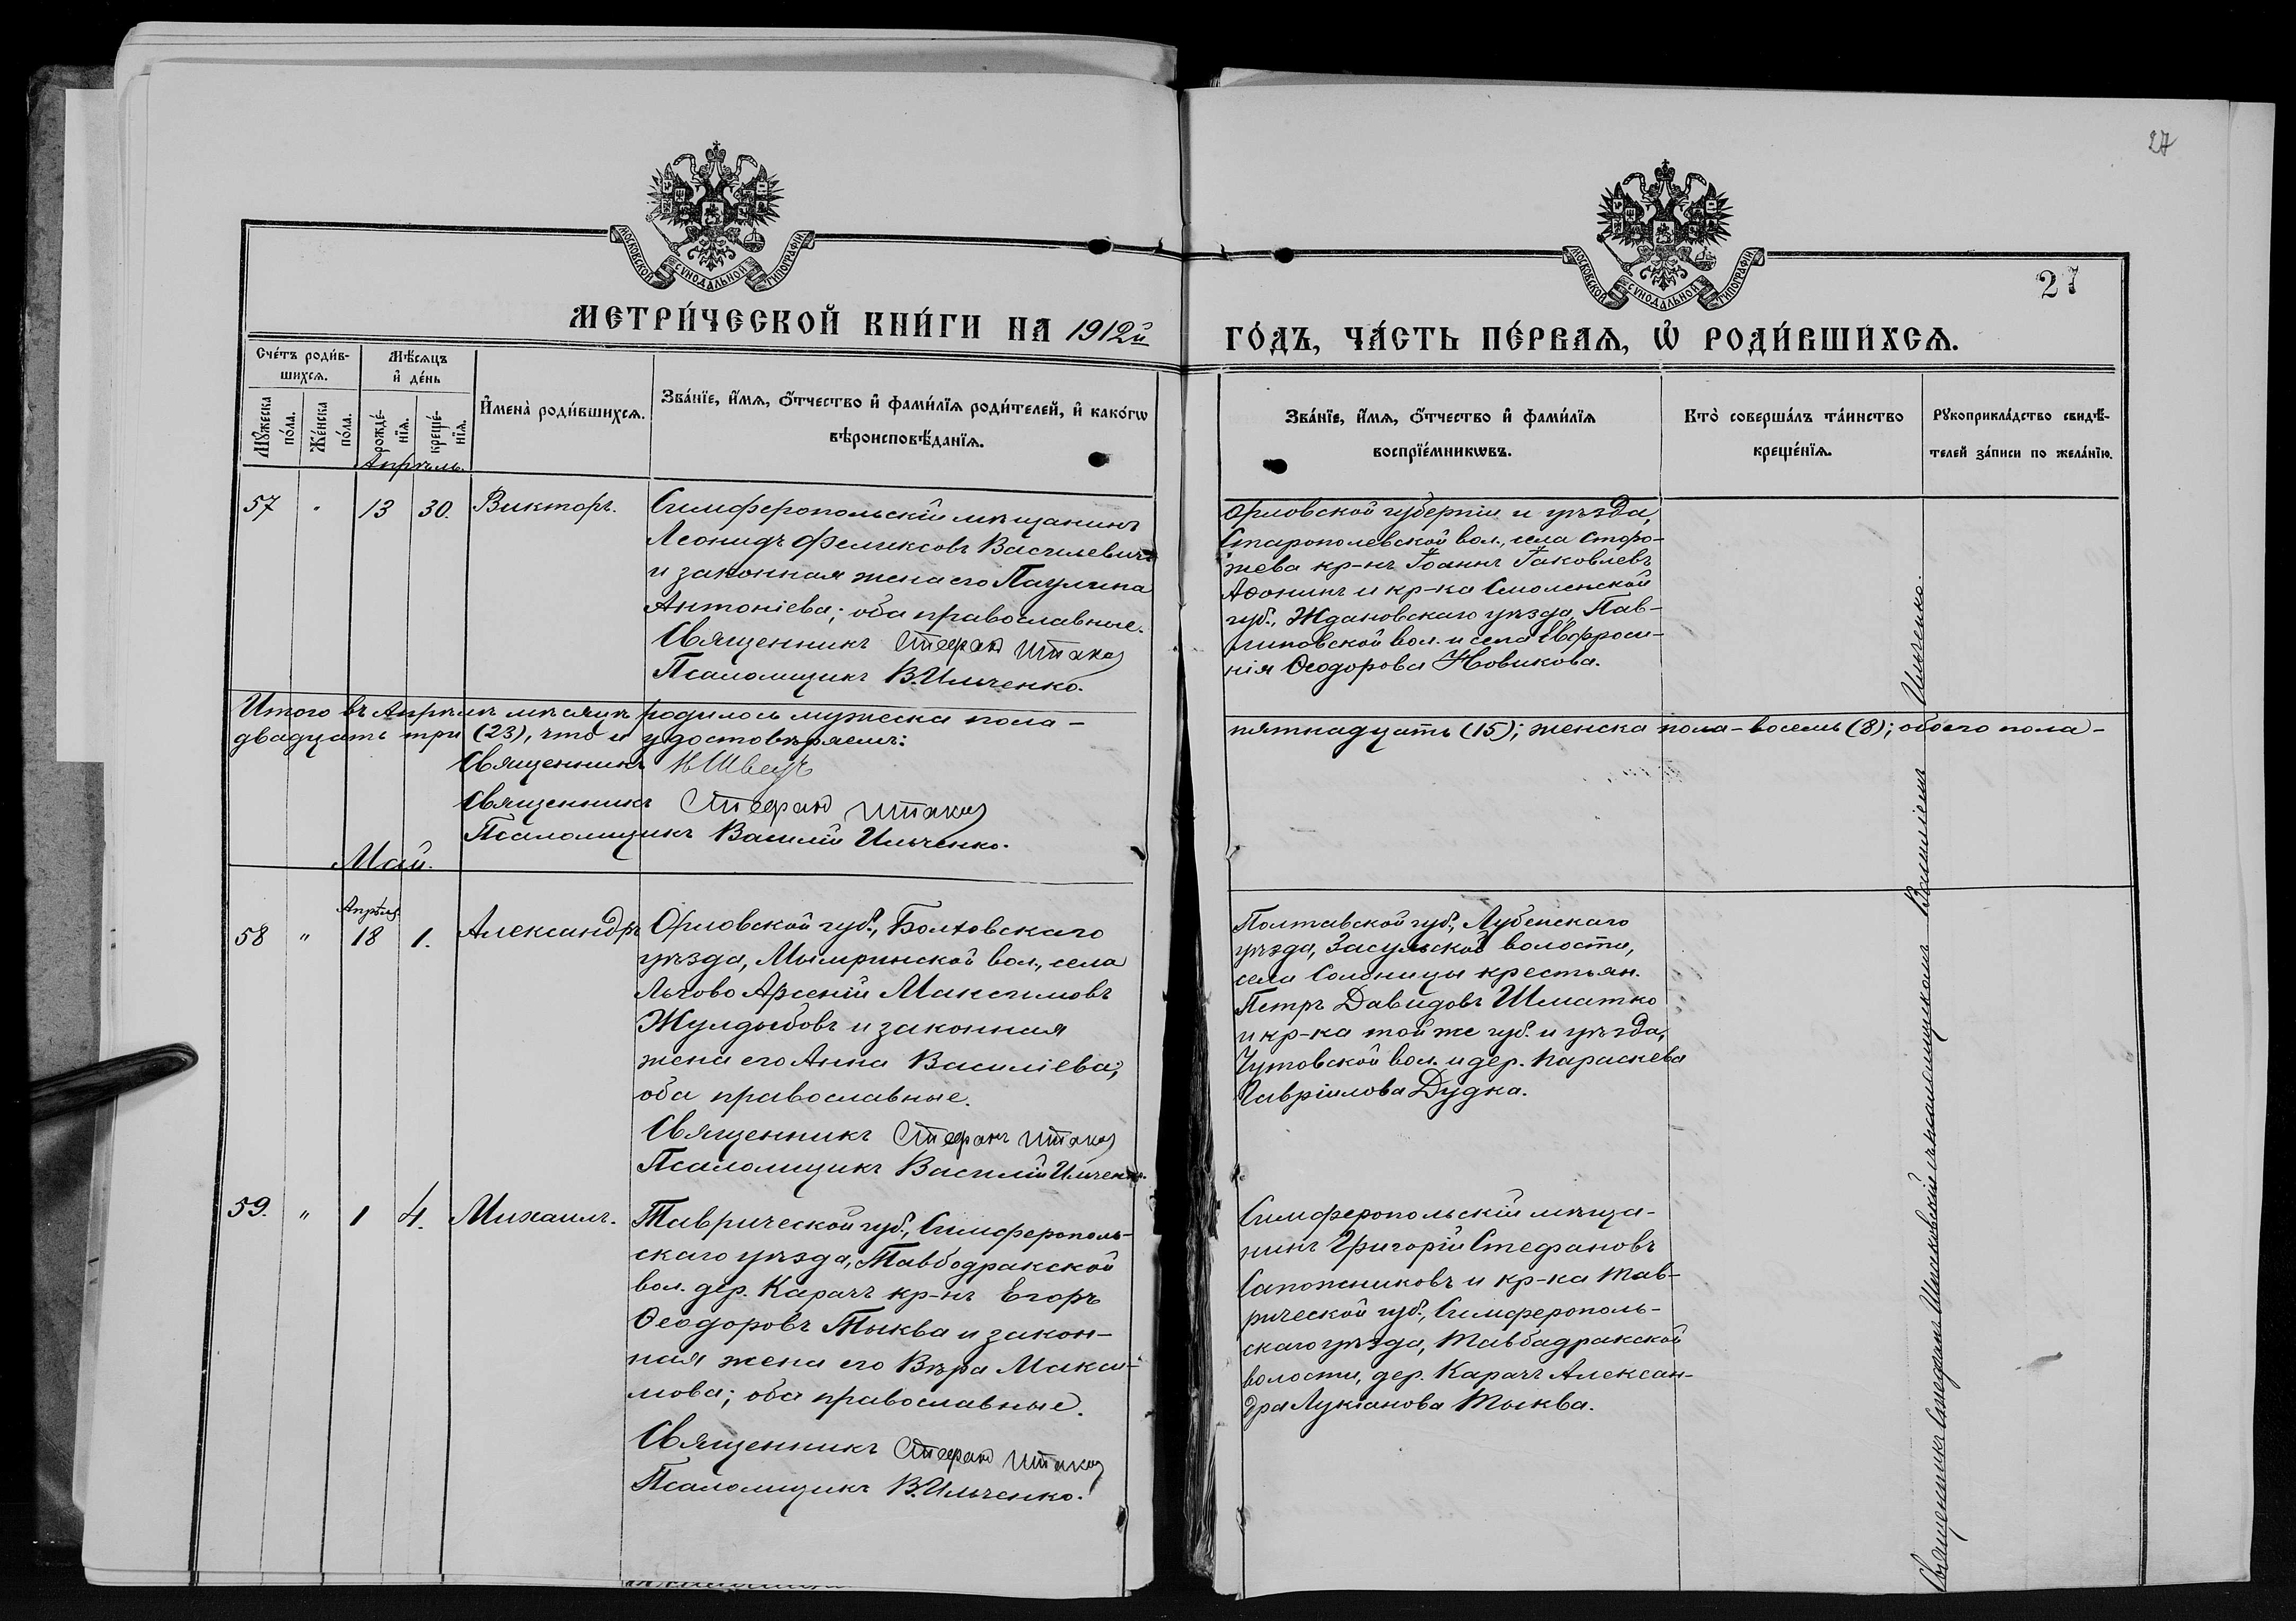 27
МОСКОВСКОЙ СѴНОДАЛЬНОЙ ТИПОГРАФІИ
МОСКОВСКОЙ СѴНОДАЛЬНОЙ ТИПОГРАФІИ
27
МЕТРИ́ЧЕСКОЙ КНИ́ГИ НА 1912й
ГО́ДЪ, ЧА́СТЬ ПЕ́РВАѦ, Ѡ҆ РОДИ́ВШИХСѦ.
Сче́тъ роди́в-
шихсѧ.
Мѣ́сѧцъ
и҆ де́нь
Мꙋ́жеска
по́ла.
Же́нска
по́ла.
рожде́-
нїѧ.
креще́-
нїѧ.
И҆мена̀ роди́вшихсѧ.
Зва́нїе, и҆́мѧ, ѻ҆́тчество и҆ фами́лїѧ роди́телей, и҆ како́гѡ
вѣроисповѣ́данїѧ.
Зва́нїе, и҆́мѧ, ѻ҆́тчество и҆ фами́лїѧ
воспрїе́мникѡвъ.
Кто̀ соверша́лъ та́инство
креще́нїѧ.
Рꙋкоприкла́дство свидѣ́-
телей за́писи по жела́нїю.
Апрѣль.
57 " 13 30. Викторъ.
Симферопольскій мѣщанинъ
Леонидъ Феликсовъ Василевичъ
и законная жена его Паулина
Антоніева; оба православные.
Священникъ Стефанъ
Псаломщикъ В. Ильченко.
Орловской губерніи и уѣзда,
Старополевской вол., села Сторо-
жева кр-нъ Іоаннъ Іаковлевъ
Аѳонинъ и кр-ка Смоленской
губ., Ждановскаго уѣзда, Пав-
линовской вол. и села Евфроси-
нія Ѳеодорова Новикова.
Итого въ Апрѣлѣ мѣсяцѣ родилось мужеска пола –
пятнадцать (15); женска пола – восемь (8); обоего пола –
двадцать три (23), что и удостовѣряемъ:
Священникъ Н Швецъ
Священникъ Стефанъ
Псаломщикъ Василій Ильченко.
Май.
Апрѣля
58 " 18 1. Александръ
Орловской губ., Болховскаго
уѣзда, Мымринской вол., села
Льгово Арсеній Максимовъ
Жулдыбовъ и законная
жена его Анна Василіева;
оба православные.
Священникъ Стефанъ
Псаломщикъ Василій Ильченко.
Полтавской губ., Лубенскаго
уѣзда, Засульской волости,
села Солоницы крестьян.
Петръ Давидовъ Шматко
и кр-ка той же губ. и уѣзда,
Чутовской вол. и дер. Параскева
Гавріилова Дудка.
59. " 1 4. Михаилъ.
Таврической губ., Симферополь-
скаго уѣзда, Тавбодракской
вол. дер. Карачъ кр-нъ Егоръ
Ѳеодоровъ Тыква и закон-
ная жена его Вѣра Макси-
мова; оба православные.
Священникъ Стефанъ
Псаломщикъ В. Ильченко.
Симферопольскій мѣща-
нинъ Григорій Стефановъ
Сапожниковъ и кр-ка Тав-
рической губ., Симферополь-
скаго уѣзда, Тавбадракской
волости, дер. Карачъ Алексан-
дра Лукіанова Тыква.
Священникъ Стефанъ съ псаломщикомъ Василіемъ Ильченко.